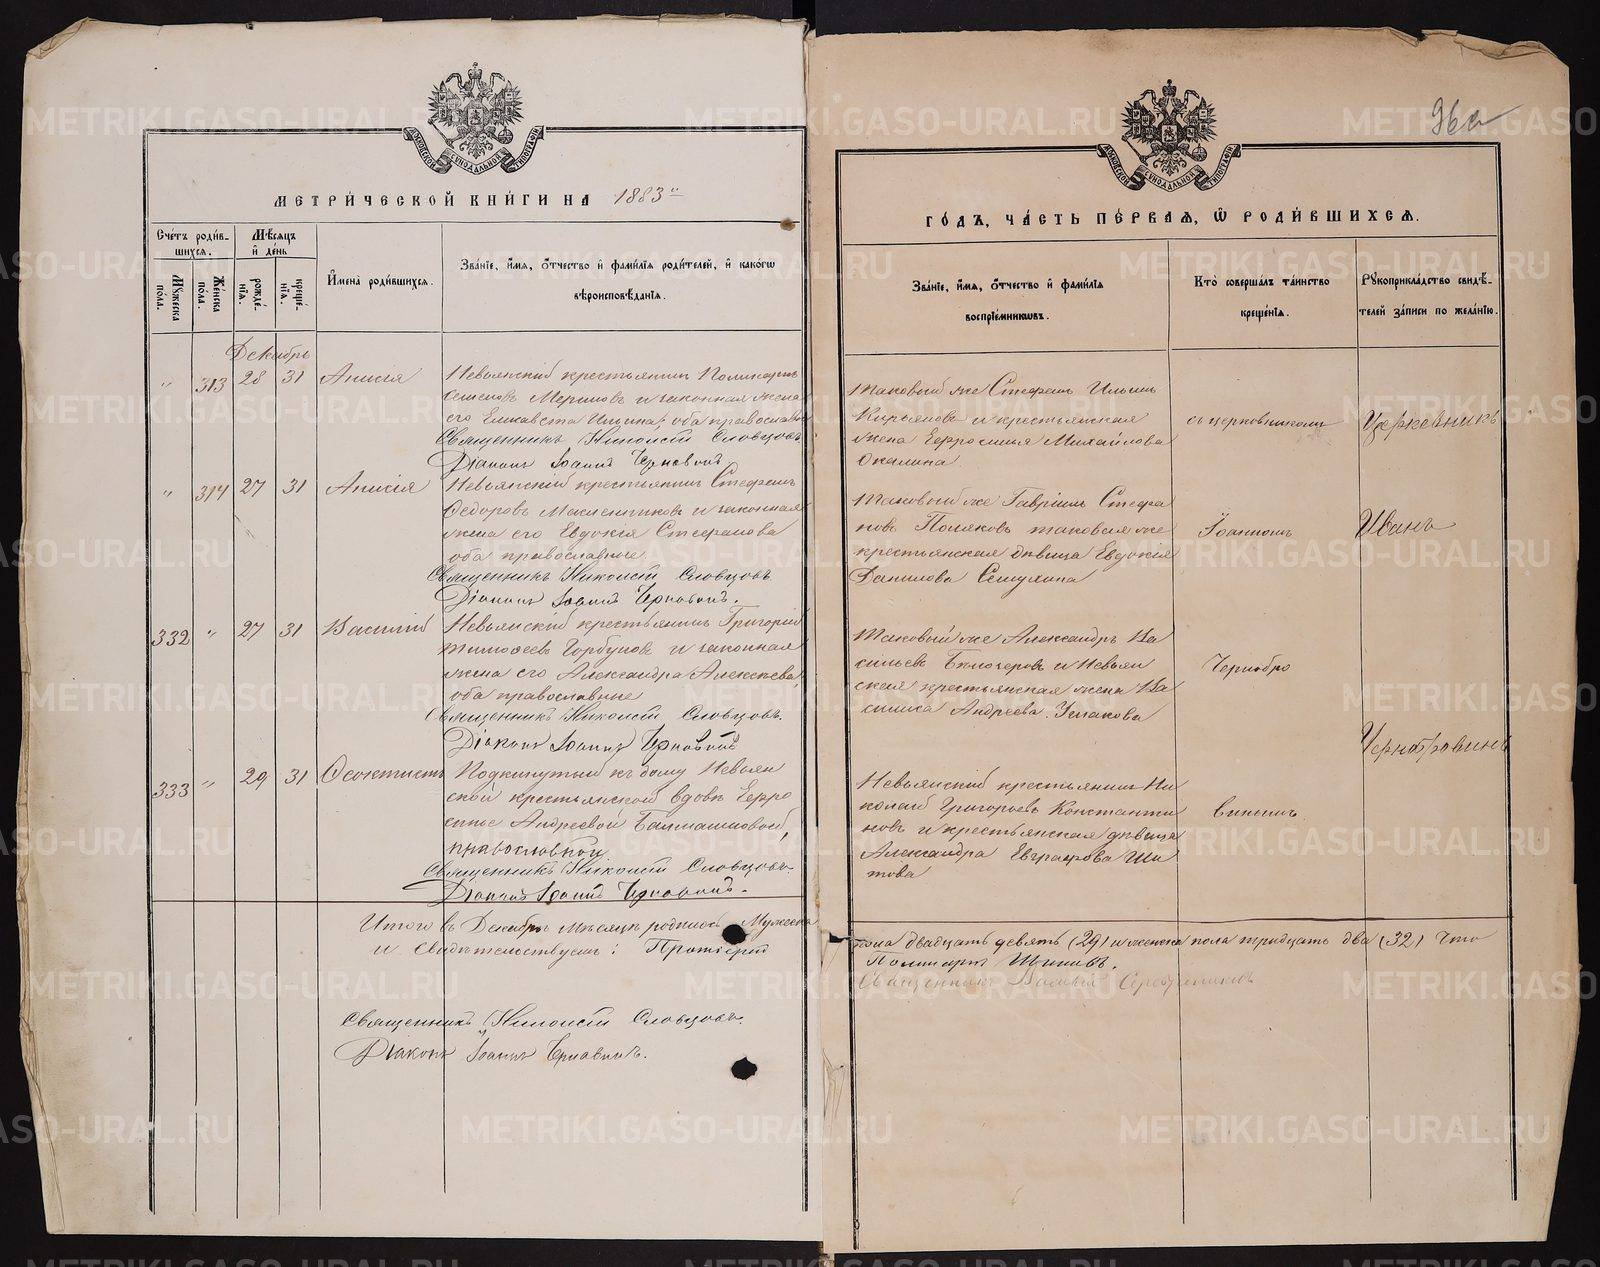 МЕТРИ́ЧЕСКОЙ КНИ́ГИ НА 1883
Сче́тъ роди́в-
шихся.
Му́жеска
по́ла.
Же́нска
по́ла.
Мѣ́сяцъ
и҆ де́нь
рожде́-
нїя.
креще́-
нїя.
И҆мена̀ роди́вшихся.
Зва́нїе, и҆́мя, ѻ҆́тчество и҆ фами́лїя роди́телей, и҆ како́гѡ
вѣроисповѣ́данїя.
Декабрь
" 313 28 31 Анисія
Невьянскій крестьянинъ Поликарпъ
Семеновъ Мериновъ и законная жена
его Елисавета Ильина, оба православные
Священникъ Николай Словцовъ
Діаконъ Іоаннъ Чернавинъ
" 314 27 31 Анисія
Невьянскій крестьянинъ Стефанъ
Ѳедоровъ Масленниковъ и законная
жена его Евдокія Стефанова
оба православные
Священникъ Николай Словцовъ
Діаконъ Іоаннъ Чернавинъ.
332 " 27 31 Василій
Невьянскій крестьянинъ Григорій
Тимоѳеевъ Горбуновъ и законная
жена его Александра Алексѣева,
оба православные
Священникъ Николай Словцовъ.
Діаконъ Іоаннъ Чернавинъ
333 " 29 31 Ѳеоктистъ
Подкинутый къ дому Невьян
ской крестьянской вдовѣ Евфро
синьѣ Андреевой
православной
Священникъ Николай Словцовъ.
Діаконъ Іоаннъ Чернавинъ.
Итого въ Декабрѣ мѣсяцѣ родилось Мужеска
и свидѣтельствуемъ: Протоіерей
Священникъ Николай Словцовъ.
Діаконъ Іоаннъ Чернавинъ.
96а
ГО́ДЪ, ЧА́СТЬ ПЕ́РВАЯ, Ѡ҆ РОДИ́ВШИХСЯ.
Зва́нїе, и҆́мя, ѻ҆́тчество и҆ фами́лїя
воспрїе́мникѡвъ.
Кто̀ соверша́лъ та́инство
креще́нїя.
Рꙋкоприкла́дство свидѣ́-
телей за́писи по жела́нїю.
Таковый же Стефанъ Ильинъ
Кирьяновъ и крестьянская
жена Евфросинія Михайлова
Окалина
съ церковникомъ
Церковникъ
Таковый же Гавріилъ Стефа
новъ Поляковъ таковая же
крестьянская дѣвица Евдокія
Данилова
Іоанномъ
Иванъ
Таковый же Александръ Ва
сильевъ Бѣлозеровъ и Невьян
ская крестьянская жена Ва
силиса Андреева Ушакова
Чернобро
Чернобровинъ
Невьянскій крестьянинъ Ни
колай Григорьевъ Константи
новъ и крестьянская дѣвица
Александра Евграфова Ши
това
винымъ
пола двадцать девять (29) и женска пола тридцать два (32) Что
Поликарпъ
Священникъ Василій Серебренниковъ
METRIKI.GASO-URAL.RU